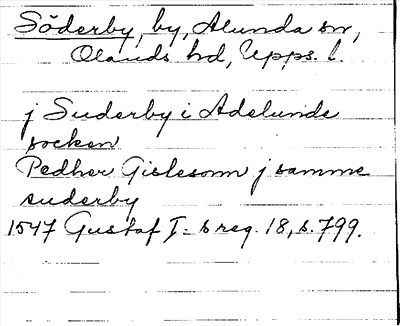 Söderby, by, Alunda sn,
Olands hd, Upps. l.
j Suderby i Adelunde
socken
Pedher Gislesonn j samme
suderby
1547 Gustaf I:s reg. 18, s. 799.